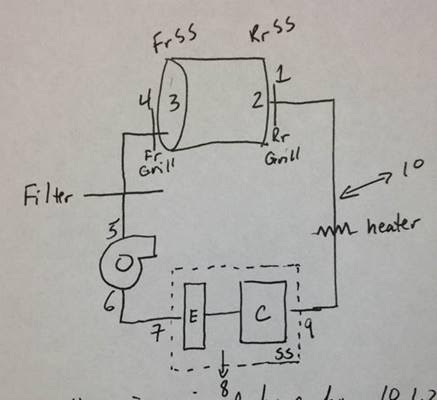 Fr SS
Rr SS
1
4
3
2
Fr
Grill
Rr
Grill
10
Filter
5
heater
6
E
C
7
9
SS
8
10,1,2